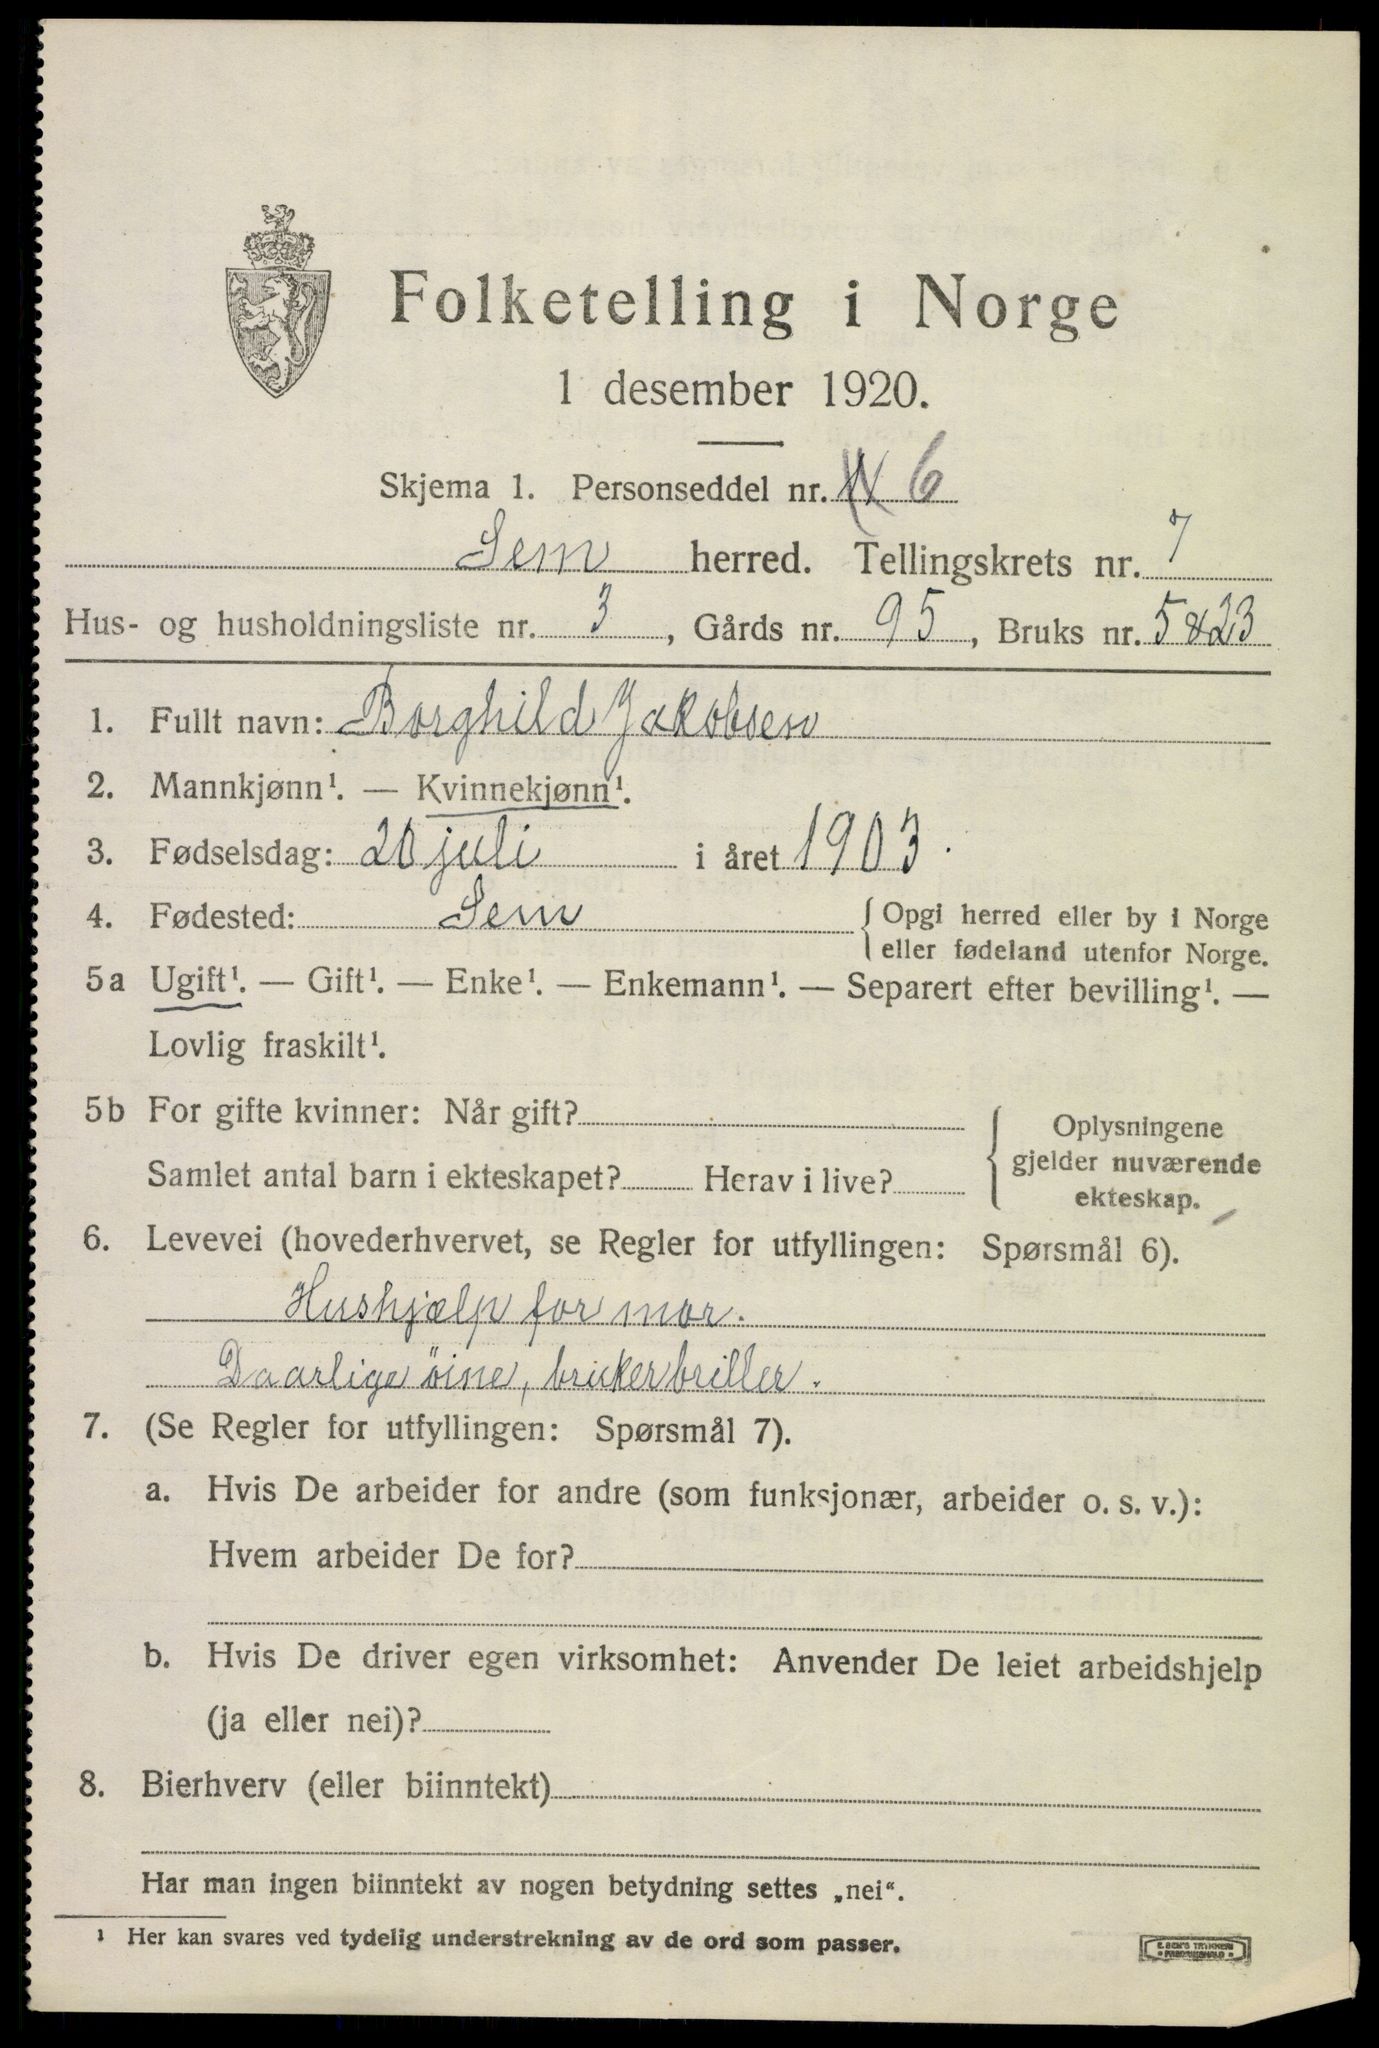 Folketelling i Norge
1 desember 1920.
Skjema 1. Personseddel nr. 6
Sem herred. Tellingskrets nr. 7
Hus- og husholdningsliste nr. 3, Gårds nr. 95, Bruks nr. 5 & 23
1. Fullt navn: Borghild Jakobsen
2. Mannkjønn¹. — Kvinnekjønn¹.
3. Fødselsdag: 20 juli i året 1903.
4. Fødested: Sem {Opgi herred eller by i Norge
eller fødeland utenfor Norge.
5a Ugift¹. — Gift¹. — Enke¹. — Enkemann¹. — Separert efter bevilling¹. —
Lovlig fraskilt¹.
5b For gifte kvinner: Når gift?
Samlet antal barn i ekteskapet? Herav i live?
{Oplysningene
gjelder nuværende
ekteskap.
6. Levevei (hovederhvervet, se Regler for utfyllingen: Spørsmål 6).
Hushjælp for mor.
Daarlige öine, bruker briller.
7. (Se Regler for utfyllingen: Spørsmål 7).
a. Hvis De arbeider for andre (som funksjonær, arbeider o. s. v.):
Hvem arbeider De for?
b. Hvis De driver egen virksomhet: Anvender De leiet arbeidshjelp
(ja eller nei)?
8. Bierhverv (eller biinntekt)
Har man ingen biinntekt av nogen betydning settes „nei“.
¹ Her kan svares ved tydelig understrekning av de ord som passer.